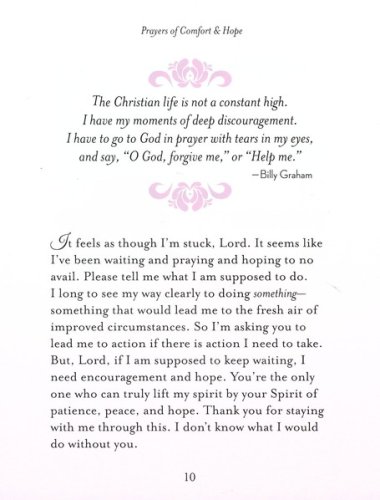 Prayers of Comfort & Hope
The Christian life is not a constant high.
I have my moments of deep discouragement.
I have to go to God in prayer with tears in my eyes,
and say, “O God, forgive me,” or “Help me.”
—Billy Graham
It feels as though I’m stuck, Lord. It seems like
I’ve been waiting and praying and hoping to no
avail. Please tell me what I am supposed to do.
I long to see my way clearly to doing something—
something that would lead me to the fresh air of
improved circumstances. So I’m asking you to
lead me to action if there is action I need to take.
But, Lord, if I am supposed to keep waiting, I
need encouragement and hope. You’re the only
one who can truly lift my spirit by your Spirit of
patience, peace, and hope. Thank you for staying
with me through this. I don’t know what I would
do without you.
10